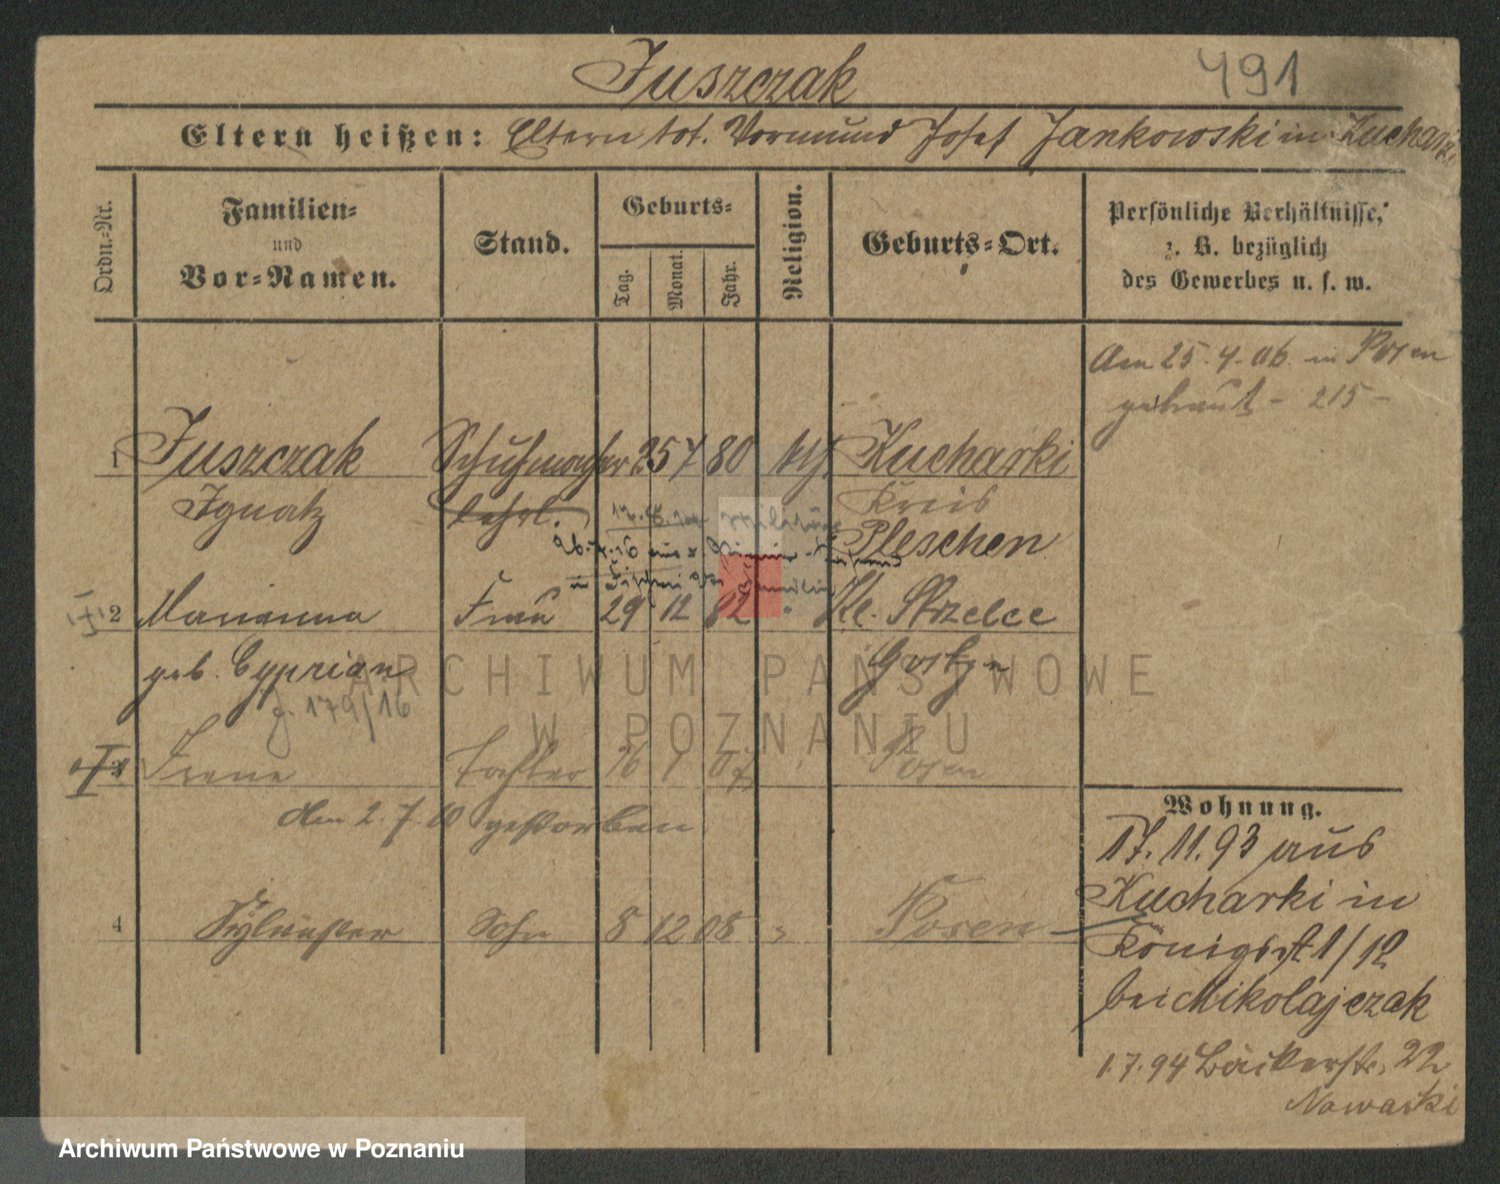 Juszczak
491
Eltern heißen: Eltern tot. Vormund Josef Jankowski in Kucharki
Ordn.-Nr.
Familien-
und
Vor-Namen.
Stand.
Geburts-
Tag.
Monat.
Jahr.
Religion.
Geburts-Ort.
Persönliche Verhältnisse,
z. B. bezüglich
des Gewerbes u. s. w.
Am 25.4.06 in Posen
getraut - 215 -
1 Juszczak Schuhmacher 25 7 80 kth Kucharki
Ignatz Lehrl. Kreis
Pleschen
2 Marianna Frau 29 12 82 " Kl. Strzelce
geb. Cyprian Gostyn
J. 179/16
3 Irene Tochter 16 1 07 " Posen
den 2.7.10 gestorben
4 Sylvester Sohn 8 12 08 " Posen
Wohnung.
17.11.93 aus
Kucharki in
Königsst 1/12
bei Mikolajczak
1.7.94 Bäckerstr. 22
Nowacki
ARCHIWUM PAŃSTWOWE
W POZNANIU
Archiwum Państwowe w Poznaniu